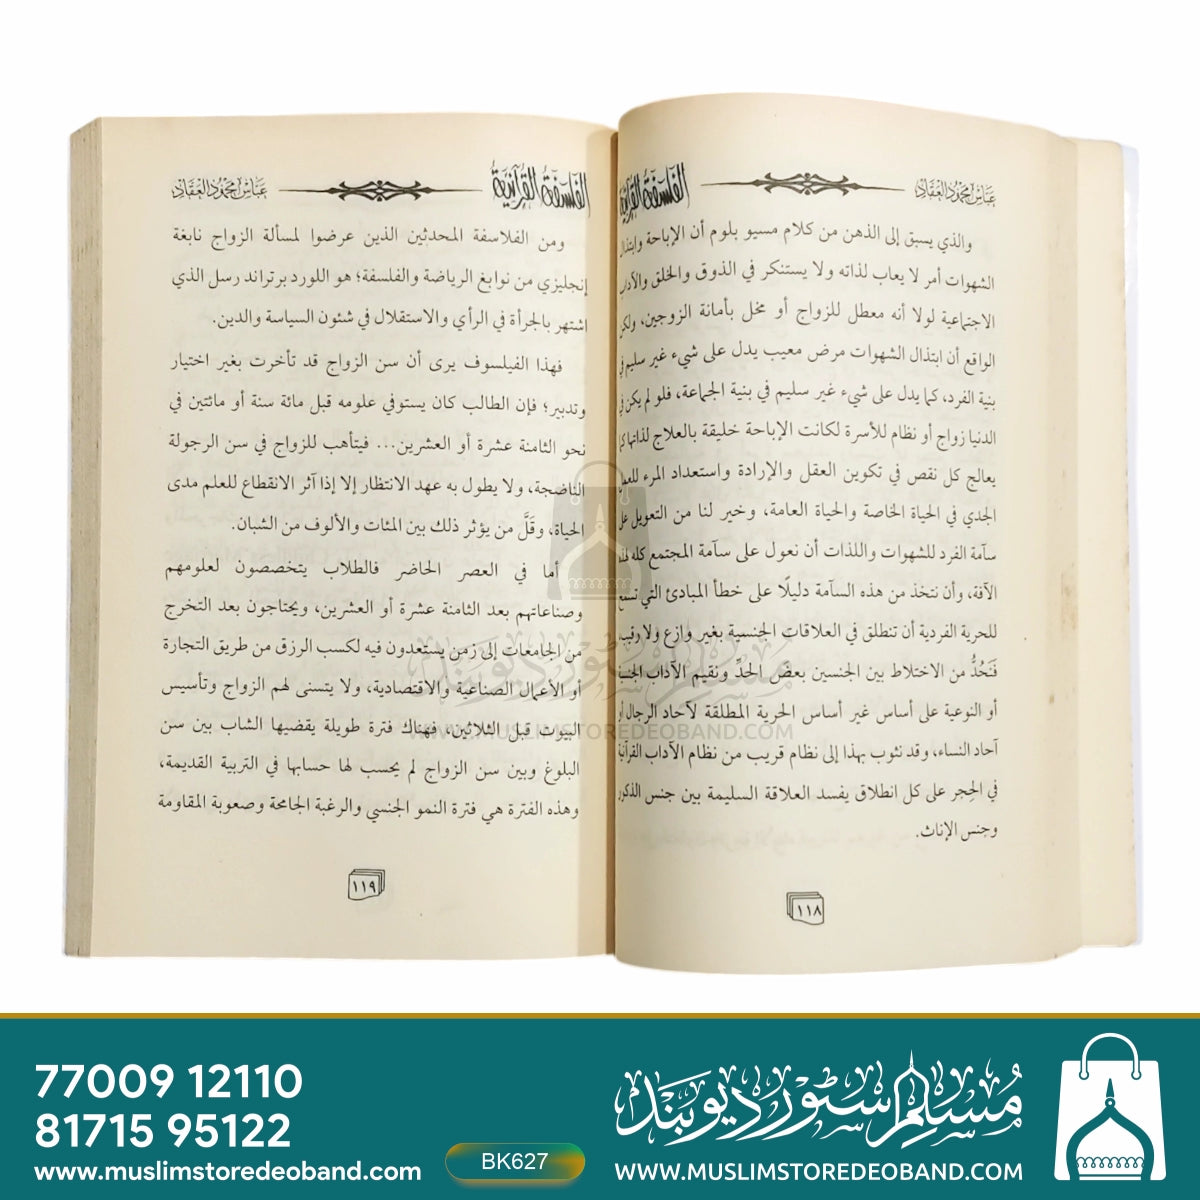 عباس محمود العقاد
الفلسفة القرآنية
والذي يسبق إلى الذهن من كلام مسيو بلوم أن الإباحة وابتذال
الشهوات أمر لا يعاب لذاته ولا يستنكر في الذوق والخلق والآداب
الاجتماعية لولا أنه معطل للزواج أو مخل بأمانة الزوجين، ولكن
الواقع أن ابتذال الشهوات مرض معيب يدل على شيء غير سليم في
بنية الفرد، كما يدل على شيء غير سليم في بنية الجماعة، فلو لم يكن في
الدنيا زواج أو نظام للأسرة لكانت الإباحة خليقة بالعلاج لذاتها كما
يعالج كل نقص في تكوين العقل والإرادة واستعداد المرء للعمل
الجدي في الحياة الخاصة والحياة العامة، وخير لنا من التعويل على
سآمة الفرد للشهوات واللذات أن نعول على سآمة المجتمع كله لهذه
الآفة، وأن نتخذ من هذه السآمة دليلًا على خطأ المبادئ التي تسمح
للحرية الفردية أن تنطلق في العلاقات الجنسية بغير وازع ولا رقيب،
فَنَحُدُّ من الاختلاط بين الجنسين بعض الحدِّ ونقيم الآداب الجنسية
أو النوعية على أساس غير أساس الحرية المطلقة لآحاد الرجال أو
آحاد النساء، وقد نثوب بهذا إلى نظام قريب من نظام الآداب القرآنية
في الحِجر على كل انطلاق يفسد العلاقة السليمة بين جنس الذكور
وجنس الإناث.
١١٨
الفلسفة القرآنية
عباس محمود العقاد
ومن الفلاسفة المحدثين الذين عرضوا لمسألة الزواج نابغة
إنجليزي من نوابغ الرياضة والفلسفة؛ هو اللورد برتراند رسل الذي
اشتهر بالجرأة في الرأي والاستقلال في شئون السياسة والدين.
فهذا الفيلسوف يرى أن سن الزواج قد تأخرت بغير اختيار
وتدبير؛ فإن الطالب كان يستوفي علومه قبل مائة سنة أو مائتين في
نحو الثامنة عشرة أو العشرين... فيتأهب للزواج في سن الرجولة
الناضجة، ولا يطول به عهد الانتظار إلا إذا آثر الانقطاع للعلم مدى
الحياة، وقَلَّ من يؤثر ذلك بين المئات والألوف من الشبان.
أما في العصر الحاضر فالطلاب يتخصصون لعلومهم
وصناعاتهم بعد الثامنة عشرة أو العشرين، ويحتاجون بعد التخرج
من الجامعات إلى زمن يستعدون فيه لكسب الرزق من طريق التجارة
أو الأعمال الصناعية والاقتصادية، ولا يتسنى لهم الزواج وتأسيس
البيوت قبل الثلاثين، فهناك فترة طويلة يقضيها الشاب بين سن
البلوغ وبين سن الزواج لم يحسب لها حسابها في التربية القديمة،
وهذه الفترة هي فترة النمو الجنسي والرغبة الجامحة وصعوبة المقاومة
١١٩
مسلم سٹور دیوبند
WWW.MUSLIMSTOREDEOBAND.COM
77009 12110
81715 95122
www.muslimstoredeoband.com
BK627
مسلم سٹور دیوبند
WWW.MUSLIMSTOREDEOBAND.COM